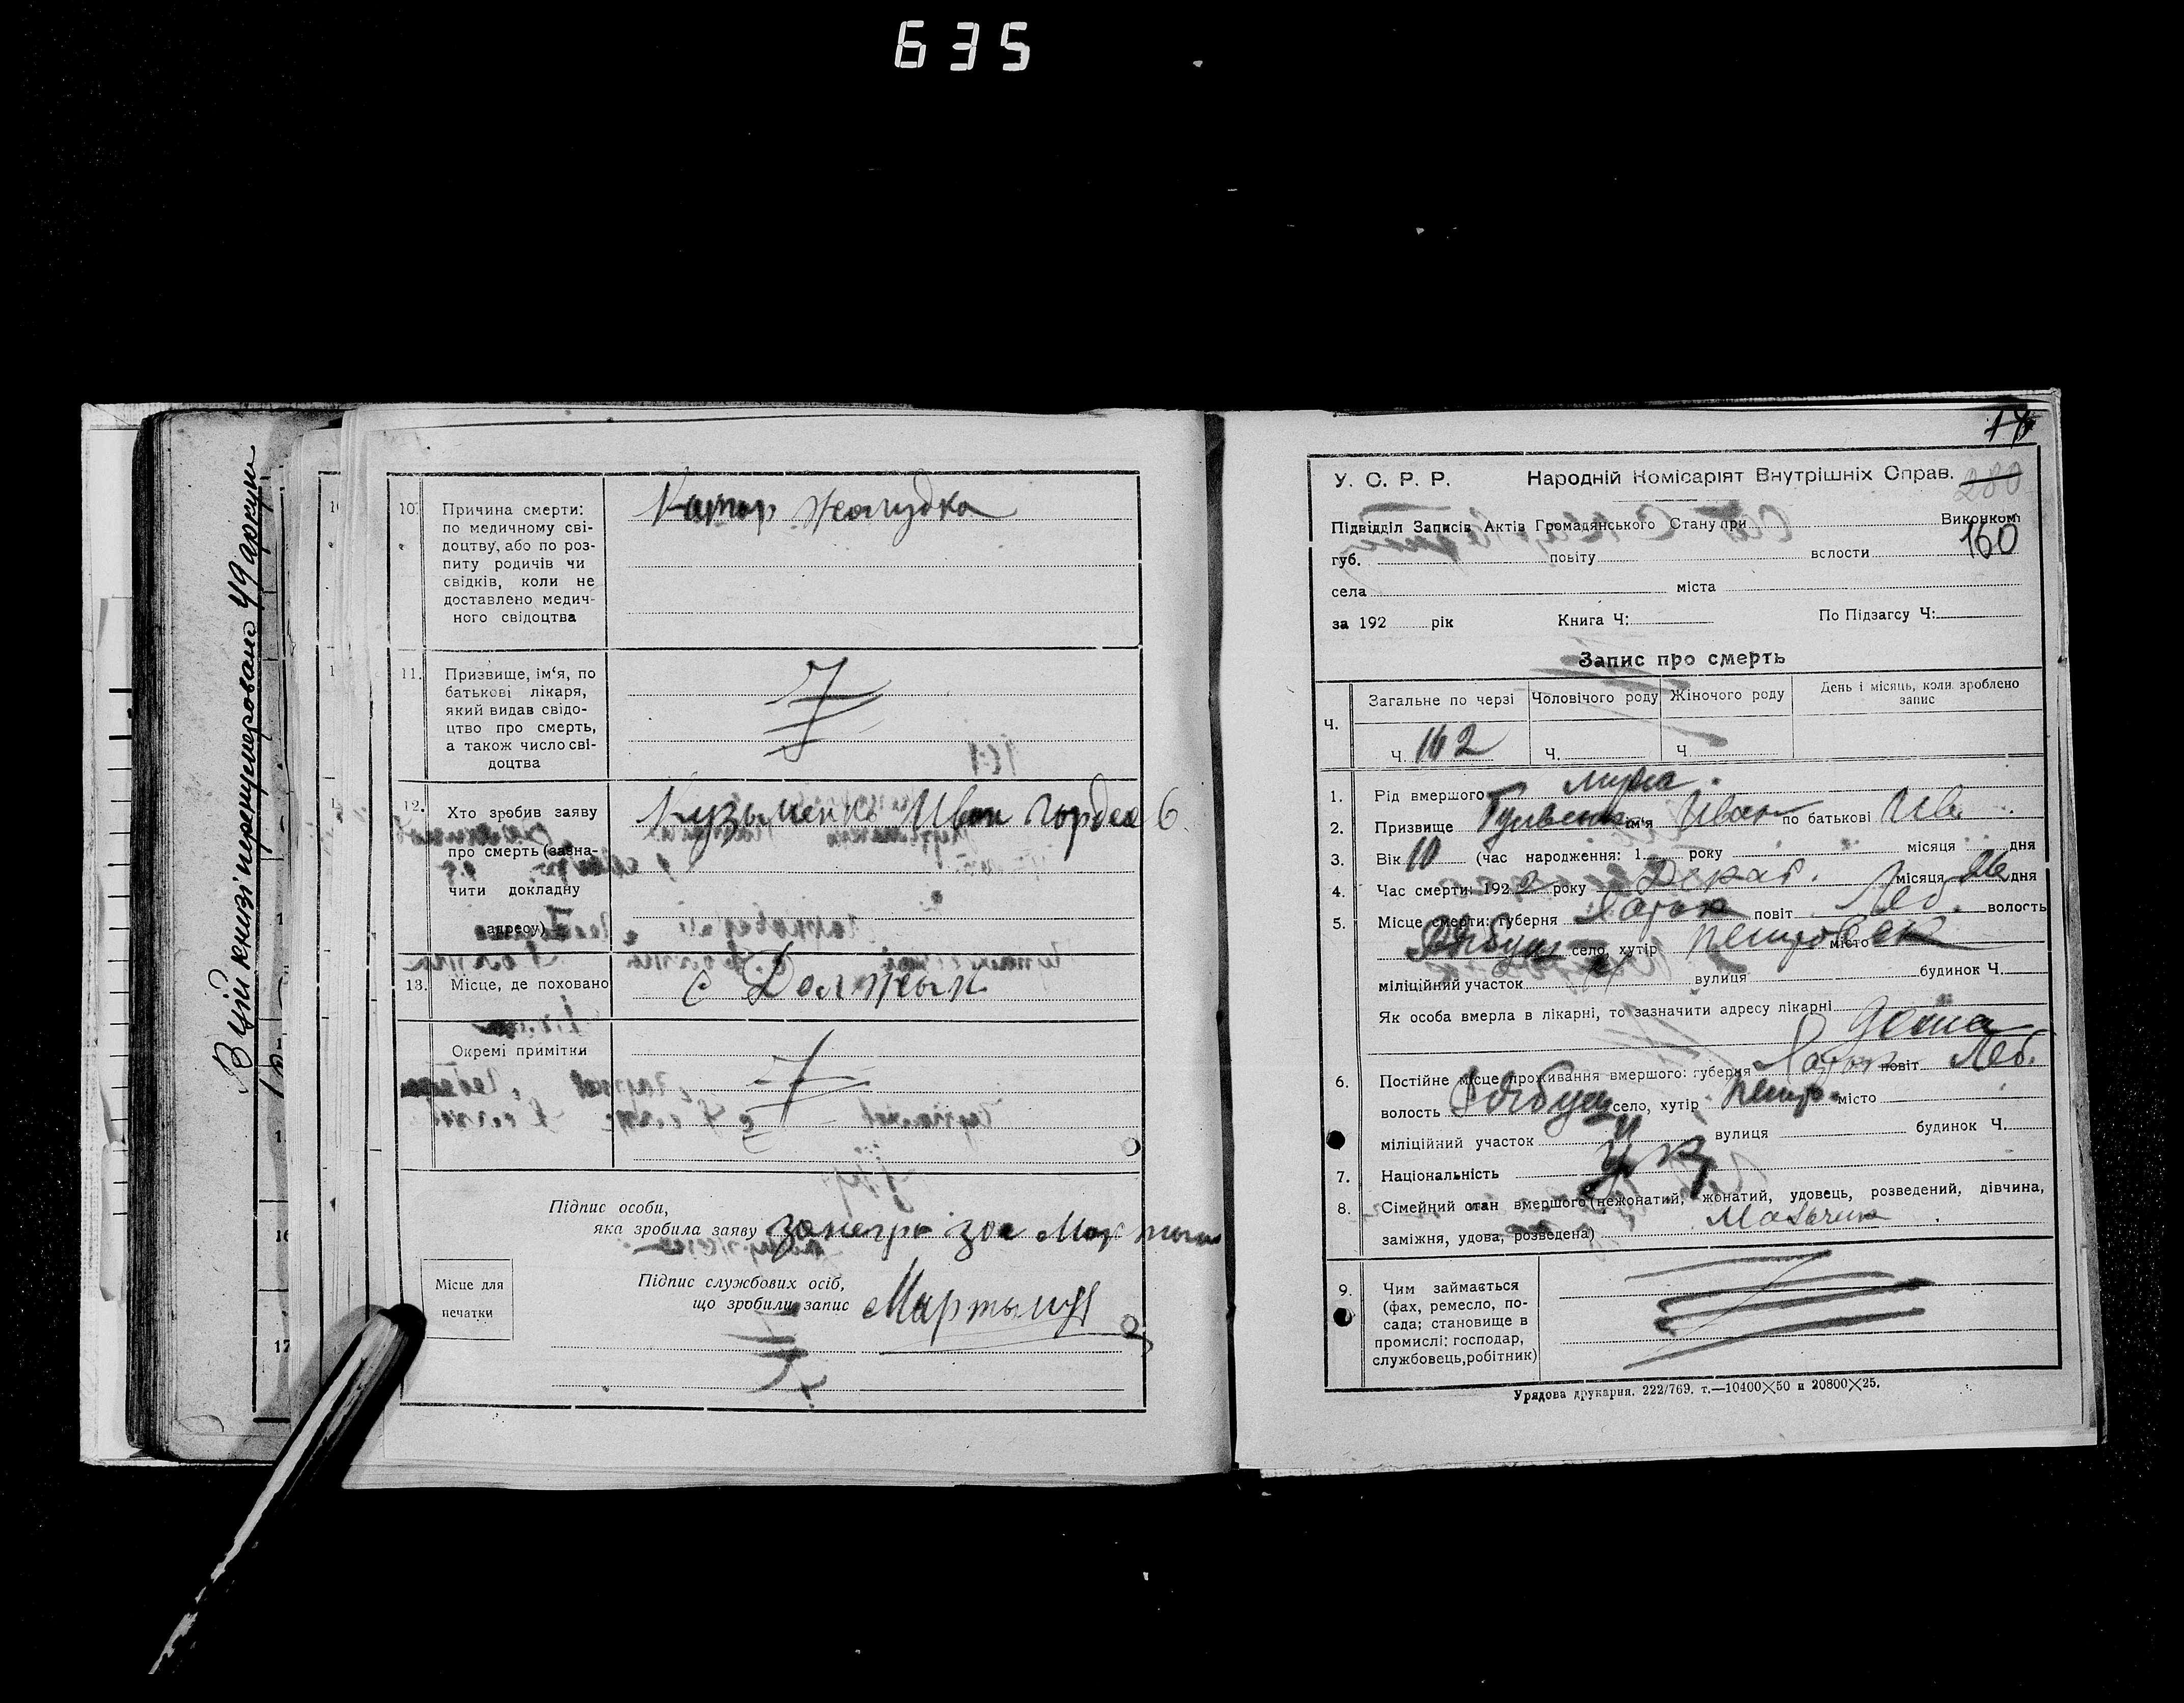 635
В цій книзі перенумеровано 49 аркуш
10. Причина смерти:
по медичному сві-
доцтву, або по роз-
питу родичів чи
свідків, коли не
доставлено медич-
ного свідоцтва
Катар желудка
11. Призвище, ім‘я, по
батькові лікаря,
який видав свідо-
цтво про смерть,
а також число сві-
доцтва
12. Хто зробив заяву
про смерть (зазна-
чити докладну
адресу)
Кузьменко Иван Гордеев
13. Місце, де поховано
с Должык
Окремі примітки
Підпис особи,
яка зробила заяву
Підпис службових осіб,
що зробили запис Мартынец
Місце для
печатки
280
У. С. Р. Р. Народній Комісаріят Внутрішніх Справ.
Підвідділ Записів Актів Громадянського Стану при Виконком
160
губ. повіту волости
села міста
за 192 рік Книга Ч: По Підзагсу Ч:
Запис про смерть
Ч. Загальне по черзі Чоловічого роду Жіночого роду День і місяць, коли зроблено
запис
Ч. 162 Ч. Ч.
1. Рід вмершого
2. Призвище ім‘я Иван по батькові Ив.
3. Вік 10 (час народження: 1 року місяця дня
4. Час смерти: 192 2 року Декаб. місяця 26 дня
5. Місце смерти: губерня Харьк повіт Леб. волость
Рябуш село, хутір Петровск місто
міліційний участок вулиця будинок Ч.
Як особа вмерла в лікарні, то зазначити адресу лікарні
дома
6. Постійне місце проживання вмершого: губерня Харьк повіт Леб.
волость Рябуш село, хутір Петро. місто
міліційний участок вулиця будинок Ч.
7. Національність Укр
8. Сімейний стан вмершого (нежонатий, жонатий, удовець, розведений, дівчина,
заміжня, удова, розведена) Мальчик
9. Чим займається
(фах, ремесло, по-
сада; становище в
промислі: господар,
службовець, робітник)
Урядова друкарня. 222/769. т.—10400×50 и 20800×25.